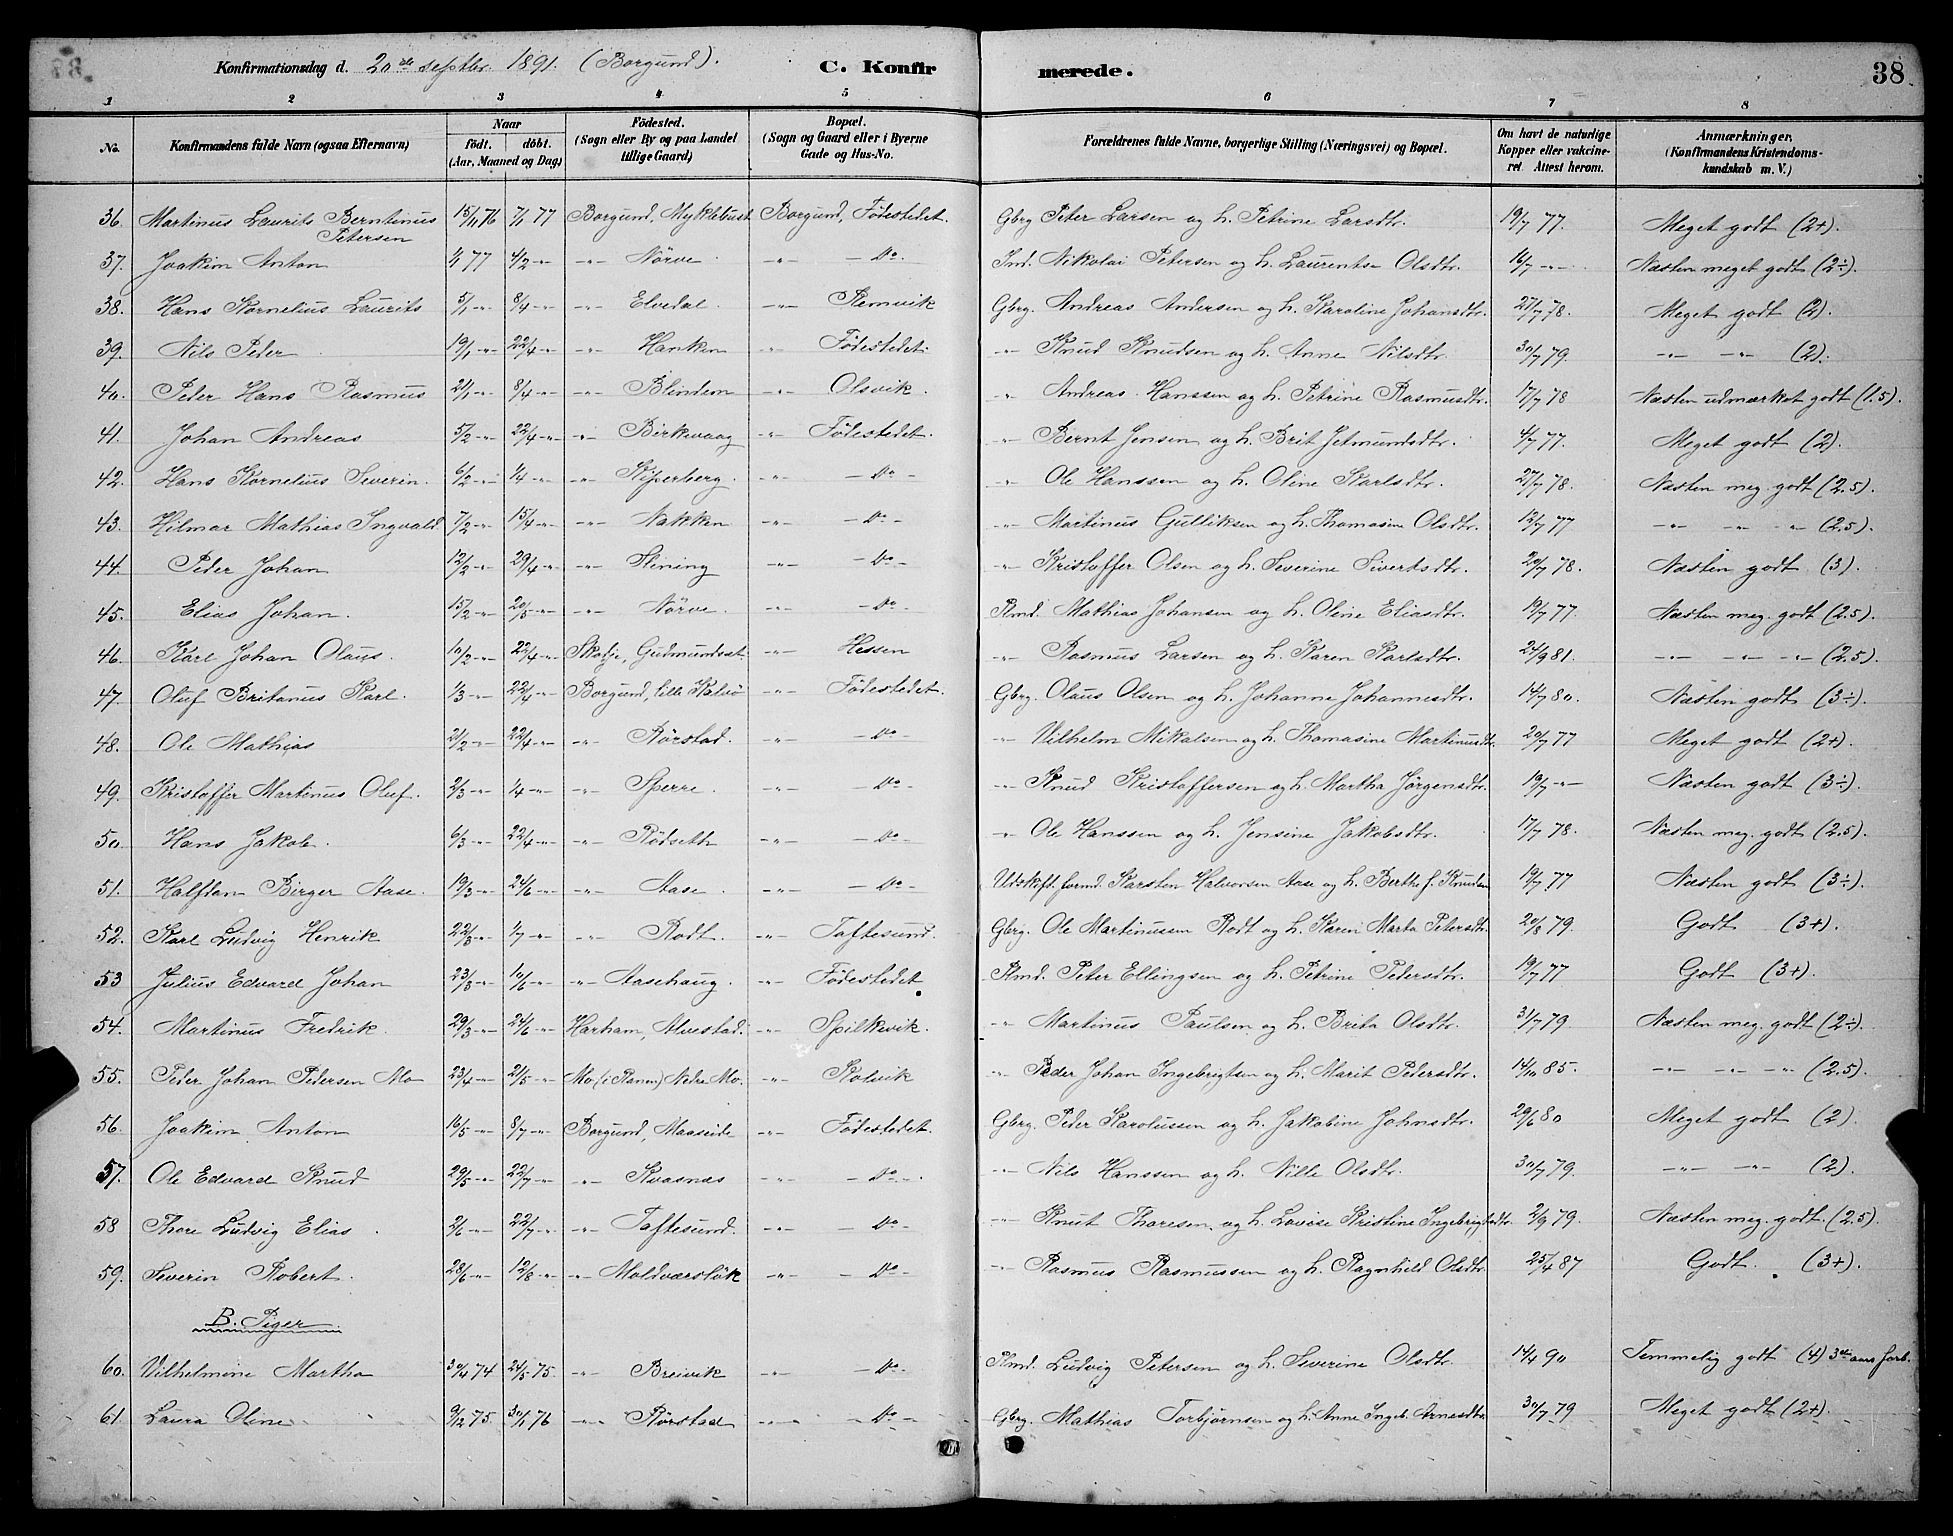 Konfirmationsdag d. 20de septbr. 1891. (Borgund). C. Konfirmerede. 38
1 2 3 4 5 6 7 8
No. Konfirmandens fulde Navn (ogsaa Efternavn) Naar födt. döbt. (Aar, Maaned og Dag) Födested. (Sogn eller By og paa Landet tillige Gaard) Bopæl. (Sogn og Gaard eller i Byerne Gade og Hus-No. Forældrenes fulde Navne, borgerlige Stilling (Næringsvei) og Bopæl. Om havt de naturlige Kopper eller vakcineret. Attest herom. Anmærkninger, (Konfirmandens Kristendomskundskab m. V.)
36. Martinus Laurits Berntinus Petersen 15/11 76 7/1 77 Borgund, Myklebust Borgund, Fødestedet. Gbrg Peter Larsen og h. Petrine Larsdtr. 19/7 77. Meget godt (2+).
37. Joakim Anton 4/1 77 4/2 -"- -"- Nörve. -"- -Do- Ind. Nikolai Petersen og h. Laurentse Olsdtr. 16/7 -"- Næsten meget godt (2÷).
38. Hans Kornelius Laurits 5/1 -"- 8/4 -"- -"- Elvedal -"- Remvik Gbrg. Andreas Andersen og h. Karoline Johansdtr. 27/7 78. Meget godt (2).
39. Nils Peder 19/1 -"- 22/4 -"- -"- Hanken -"- Fødestedet. -"- Knud Knudsen og h. Anne Nilsdtr. 30/7 79. -"- -"- (2).
40. Peder Hans Rasmus 21/1 -"- 8/4 -"- -"- Blindem -"- Olsvik. -"- Andreas Hanssen og h. Petrine Rasmusdtr. 17/7 78 Næsten udmærket godt (1.5).
41. Johan Andreas 5/2 -"- 22/4 -"- -"- Birkevaag -"- Fødestedet. -"- Bernt Jensen og h. Brit Jetmundsdtr. 4/7 77. Meget godt (2).
42. Hans Kornelius Severin. 6/2 -"- 1/4 -"- -"- Kiperberg. -"- -Do- -"- Ole Hanssen og h. Oline Karlsdtr. 27/7 78. Næsten meg. godt (2.5).
43. Hilmar Mathias Ingvald 7/2 -"- 15/4 -"- -"- Nakken -"- -Do- -"- Martinus Gulliksen og h. Thomasine Olsdtr. 12/7 77 -"- -"- -"- (2.5).
44. Peder Johan 12/2 -"- 29/4 -"- -"- Flening -"- -Do- -"- Kristoffer Olsen og h. Severine Sivertsdtr. 20/7 78. Næsten godt (3).
45. Elias Johan. 15/2 -"- 20/5 -"- -"- Nörve. -"- -Do- Plmd. Mathias Johansen og h. Oline Eliasdtr. 19/7 77. Næsten meg. godt (2.5).
46. Karl Johan Olaus. 10/2 -"- 22/4 -"- Skodje, Gudmundset -"- Hessen -"- Rasmus Larsen og h. Karen Karlsdtr. 24/9 81. -"- -"- -"- (2.5).
47. Oluf Britanus Karl. 1/3 -"- 22/4 -"- Borgund, lille Kalvö -"- Fødestedet. Gbrg. Olaus Olsen og h. Johanne Johannesdtr. 14/7 80. Næsten godt (3÷).
48. Ole Mathias 21/2 -"- 22/4 -"- -"- Rörstad. -"- -Do- -"- Vilhelm Mikalsen og h. Thomasine Martinusdtr. 20/7 77 Meget godt (2+).
49. Kristoffer Martinus Oluf. 2/3 -"- 1/4 -"- -"- Sperre. -"- -Do- -"- Knud Kristoffersen og h. Martha Jörgensdtr. 19/7 -"- Næsten godt (3÷).
50. Hans Jakob. 6/3 -"- 22/4 -"- -"- Rödseth -"- -Do- -"- Ole Hanssen og h. Jensine Jakobsdtr. 17/7 78. Næsten meg. godt (2.5)
51. Halfdan Birger Aase. 19/3 -"- 24/6 -"- -"- Aase. -"- -Do- Udskift. formd. Karsten Halvorsen Aase og h. Berthe f. Knudsen 19/7 77 Næsten godt (3÷).
52. Karl Ludvig Henrik 22/3 -"- 1/7 -"- -"- Rodt. -"- Taftesund. Gbrg. Ole Martinussen Rodt og h. Karen Marta Petersdtr. 20/8 79. Godt (3+).
53 Julius Edvard Johan 23/3 -"- 10/6 -"- -"- Aasehaug. -"- Fødestedet Plmd. Peter Ellingsen og h. Petrine Pedersdtr. 19/7 77 Godt (3+).
54. Martinus Fredrik. 29/3 -"- 24/6 -"- Harham, Alvestad. -"- Spilkevik. -"- Martinus Paulsen og h. Brita Olsdtr. 31/7 79 Næsten meg. godt (2÷).
55. Peder Johan Pedersen Mo 23/4 -"- 21/5 -"- Mo (i Ranen) Nedre Mo. -"- Kolvik -"- Peder Johan Ingebrigtsen og h. Marit Pedersdtr. 14/10 85. -"- -"- -"- (2.5).
56. Joakim Anton 16/5 -"- 8/7 -"- Borgund, Maaseide -"- Fødestedet. Gbrg. Peder Karolussen og h. Jakobine Johnsdtr. 29/6 80 Meget godt (2).
57. Ole Edvard Knud 29/5 -"- 22/7 -"- -"- Kvasnæs -"- -Do-. -"- Nils Hanssen og h. Nille Olsdtr. 30/7 79. -"- -"- (2).
58 Thore Ludvig Elias. 2/6 -"- 22/7 -"- -"- Taftesund. -"- -Do- -"- Knut Thoresen og h. Lovise Kristine Ingebrigtsdtr. 2/9 79. Næsten meg. godt. (2.5).
59. Severin Robert. 23/6 -"- 12/8 -"- -"- Moldværsløk -"- -Do- -"- Rasmus Rasmussen og h. Ragnhild Olsdtr. 25/4 87 Godt. (3+).
B. Piger.
60. Vilhelmine Martha 30/4 74 24/5 75. -"- Breivik -"- -Do- Plmd. Ludvig Petersen og h. Severine Olsdtr. 14/4 90 Temmelig godt (4) 3die aars forb.
61. Laura Oline 9/12 75. 30/1 76 -"- Rörstad -"- -Do- Gbrg. Mathias Torbjørnsen og h. Anne Ingeb. Arnesdtr. 30/7 79 Meget godt (2+).